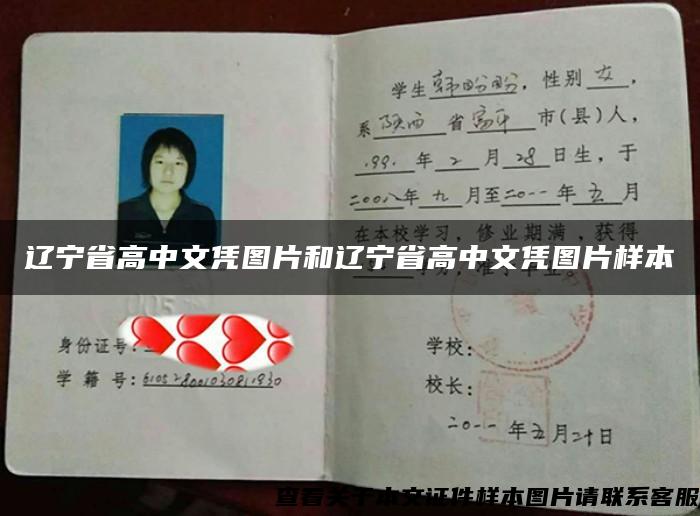 学生 韩盼盼，性别 女，
系 陕西 省 富平 市(县)人，
1991 年 2 月 28 日生，于
二00八年 九 月至二0一一年 五 月
在本校学习，修业期满，获得
辽宁省高中文凭图片和辽宁省高中文凭图片样本
身份证号：
学 籍 号：
学校：
校长：
二0一一 年 五 月 二十 日
查看关于本文证件样本图片请联系客服